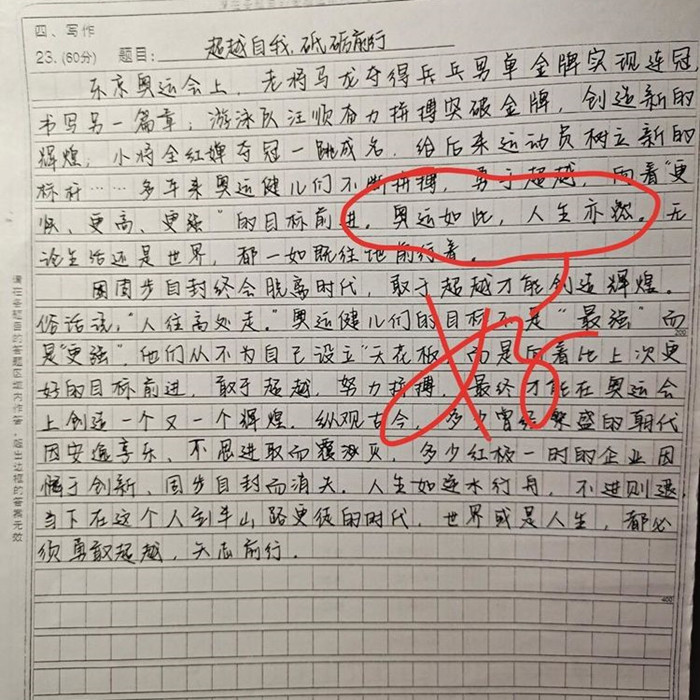 四、写作
23.(60分) 题目: 超越自我,砥砺前行
东京奥运会上,老将马龙夺得乒乓男单金牌实现连冠,
书写另一篇章;游泳队汪顺奋力拼搏突破金牌,创造新的
辉煌;小将全红婵夺冠一跳成名,给后来运动员树立新的
标杆……多年来奥运健儿们不断拼搏,勇于超越,向着“更
快、更高、更强”的目标前进。奥运如此,人生亦燃。无
论生活还是世界,都一如既往地前行着。
固步自封终会脱离时代,敢于超越才能创造辉煌。
俗话说,“人往高处走。”奥运健儿们的目标不是“最强”而
是“更强”他们从不为自己设立“天花板”而是向着比上次更
好的目标前进,敢于超越,努力拼搏,最终才能在奥运会
上创造一个又一个辉煌。纵观古今,多少曾经繁盛的朝代
因安逸享乐、不思进取而覆灭,多少红极一时的企业因
惰于创新、固步自封而消失。人生如逆水行舟,不进则退
当下在这个人到半山路更陡的时代,世界或是人生,都必
须勇敢超越,矢志前行。
好
200
400
请在各题目的答题区域内作答,超出边框的答案无效